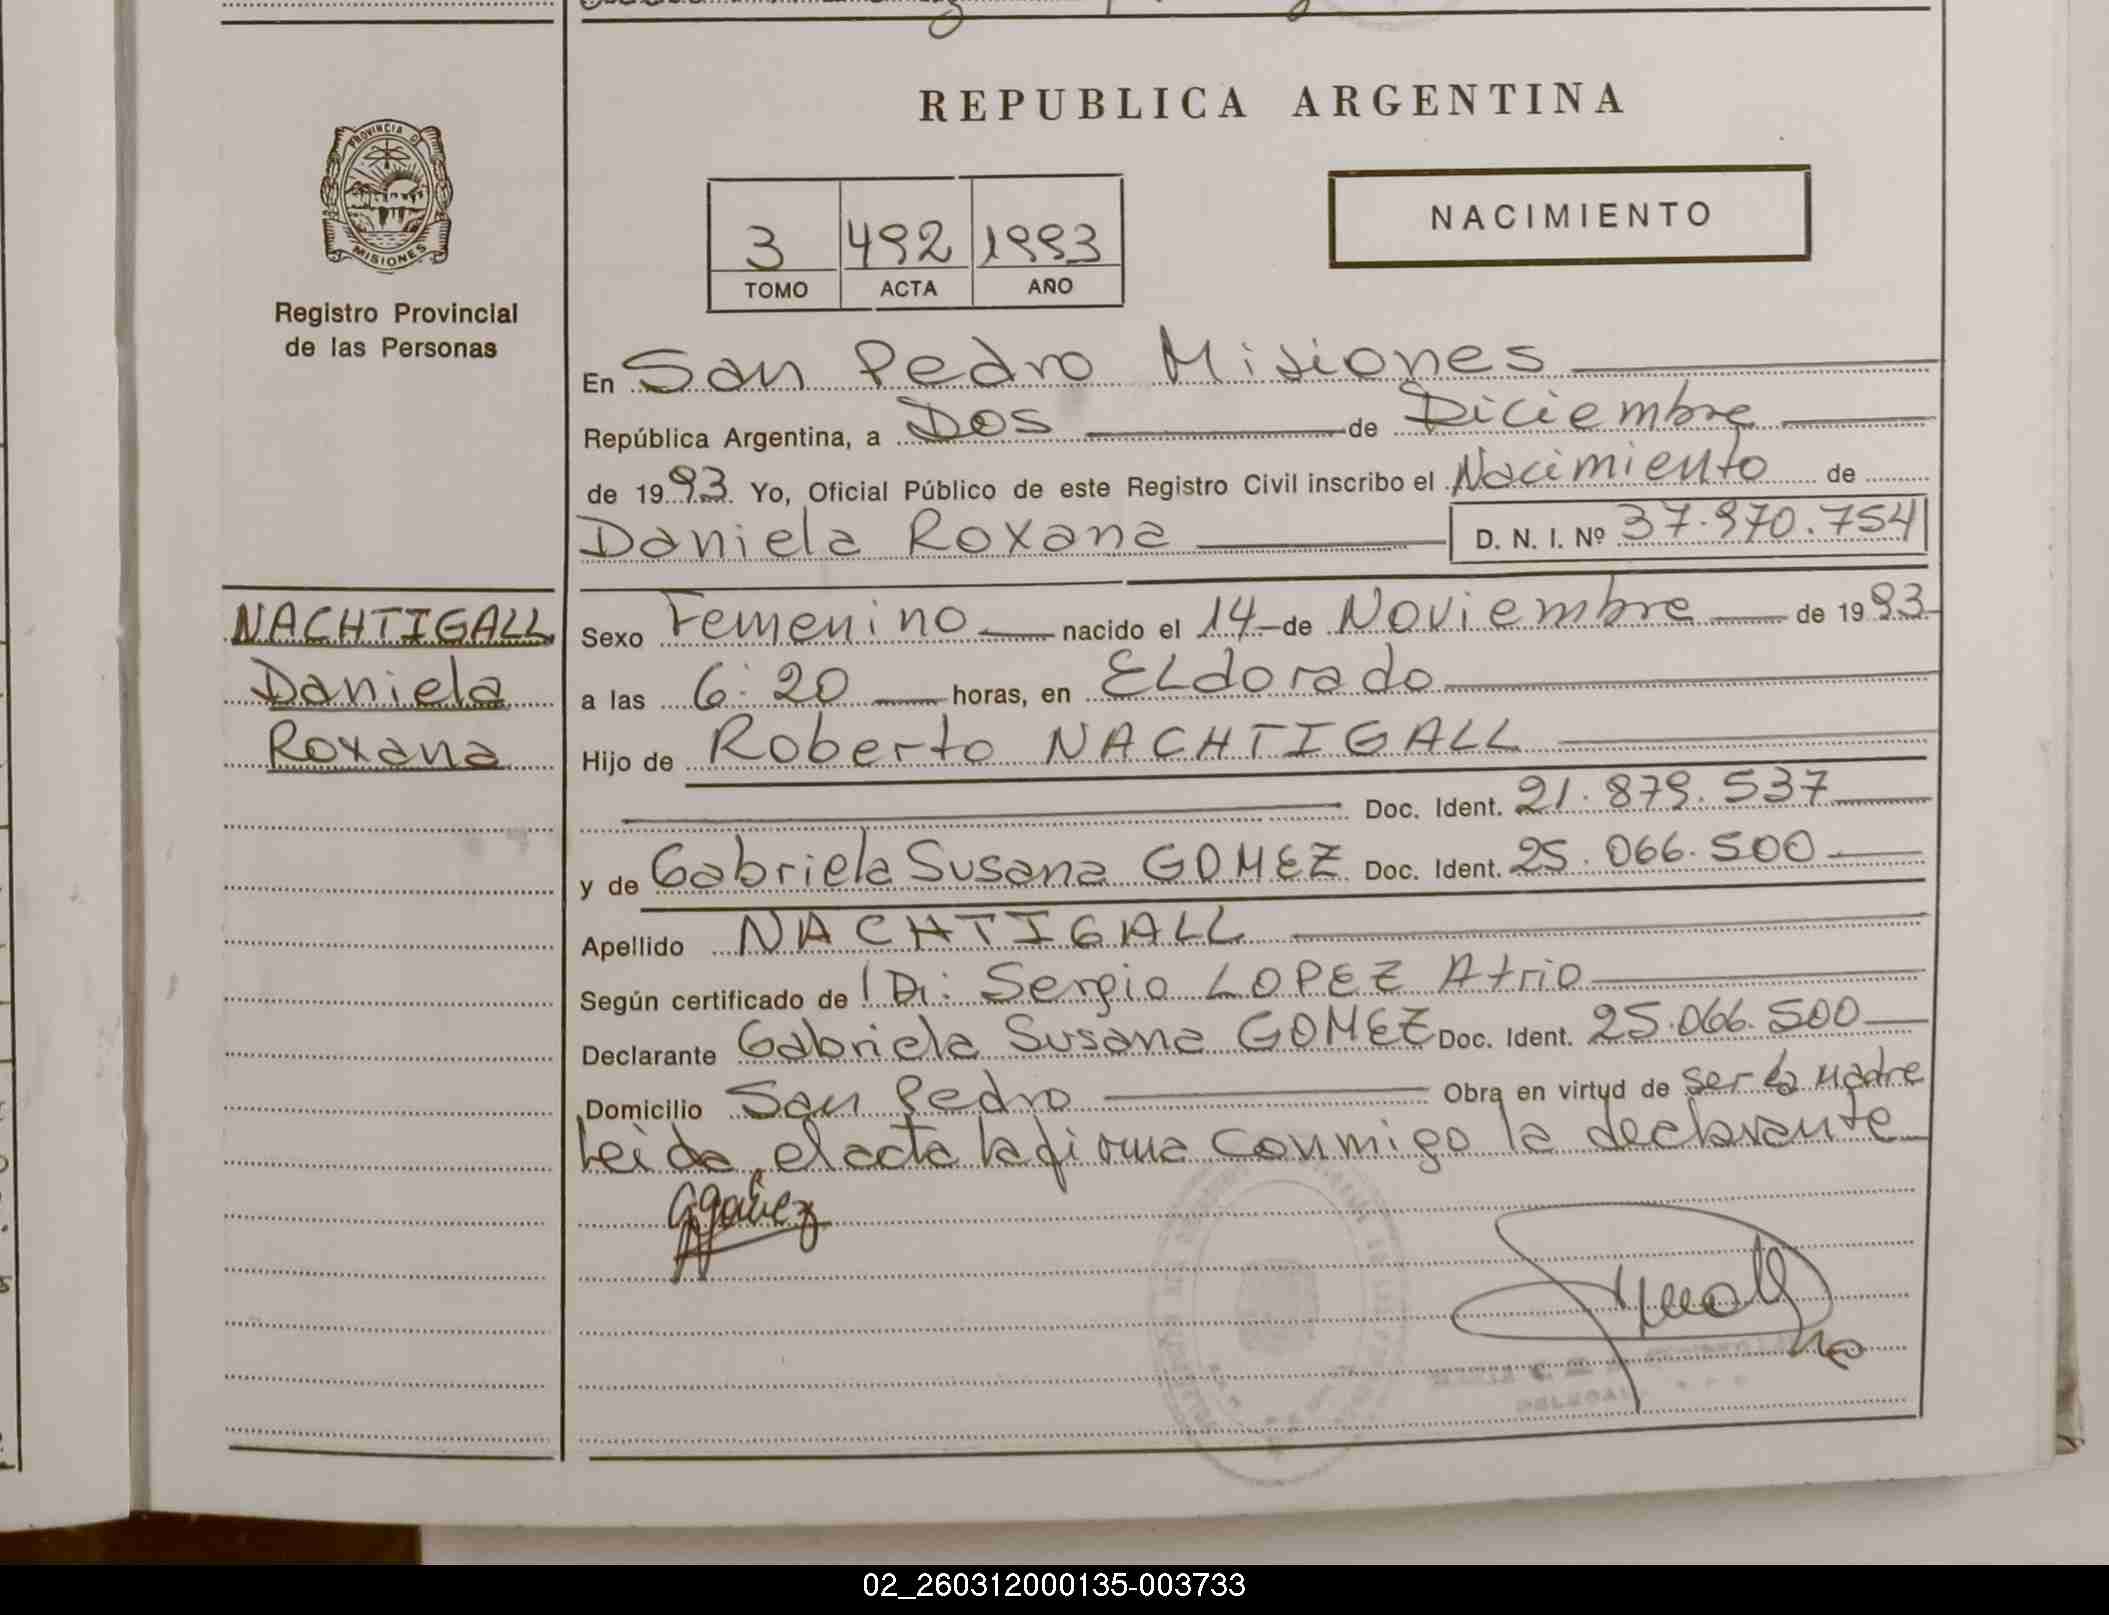 REPUBLICA ARGENTINA
PROVINCIA D
MISIONES
Registro Provincial
de las Personas
3 492 1993
TOMO ACTA AÑO
NACIMIENTO
En San Pedro Misiones
República Argentina, a Dos de Diciembre
de 1993. Yo, Oficial Público de este Registro Civil inscribo el Nacimiento de
Daniela Roxana D. N. I. Nº 37.970.754
NACHTIGALL
Daniela
Roxana
Sexo Femenino nacido el 14 de Noviembre de 1993
a las 6:20 horas, en ELdorado
Hijo de Roberto NACHTIGALL
Doc. Ident. 21.879.537
y de Gabriela Susana GOMEZ Doc. Ident. 25.066.500
Apellido NACHTIGALL
Según certificado de Sergio LOPEZ Atrio
Declarante Gabriela Susana GOMEZ Doc. Ident. 25.066.500
Domicilio San Pedro Obra en virtud de ser la Madre
Leida el acta la firma conmigo la declarante
GGomez
02_260312000135-003733